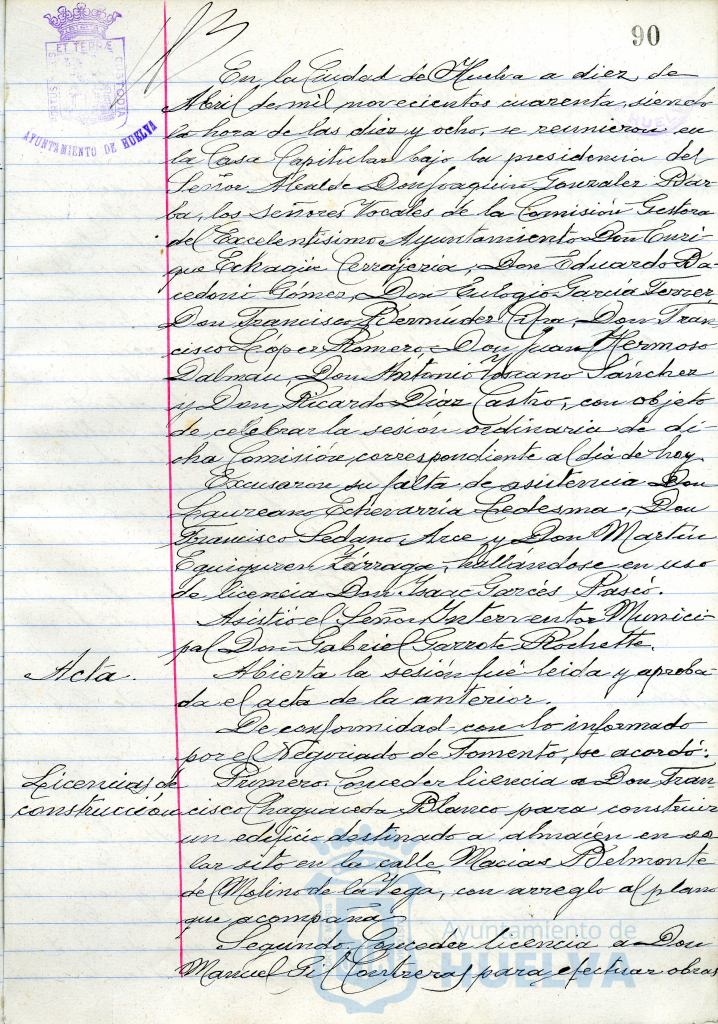 90
PORTUS MARIS ET TERRÆ CUSTODIA
AYUNTAMIENTO DE HUELVA
En la Ciudad de Huelva a diez de
Abril de mil novecientos cuarenta, siendo
la hora de las diez y ocho, se reunieron en
la Casa Capitular bajo la presidencia del
Señor Alcalde Don Joaquin Gonzalez Bar-
ba, los señores Vocales de la Comisión Gestora
del Excelentisimo Ayuntamiento Don Enri-
que Echagüe Cerrajeria, Don Eduardo Ba-
cedoni Gómez, Don Eulogio Garcia Ferrer
Don Francisco Bermúdez Don Fran-
cisco López Romero, Don Juan Hermoso
Dalmau, Don Antonio Toscano Sánchez
y Don Ricardo Díaz Castro, con objeto
de celebrar la sesión ordinaria de di-
cha Comisión correspondiente al dia de hoy.
Excusaron su falta de asistencia Don
Laureano Echevarría Ledesma, Don
Francisco Sedano Arce y Don Martín
Eguiguren Zárraga, hallándose en uso
de licencia Don Isaac Garcés Pascó.
Asistió el Señor Interventor Munici-
pal Don Gabriel Garrote Rochette.
Acta. Abierta la sesión fué leida y aproba-
da el acta de la anterior.
De conformidad con lo informado
por el Negociado de Fomento, se acordó:
Licencias de Primero. Conceder licencia a Don Fran-
construcción cisco Chaguaceda Blanco para construir
un edificio destinado a almacén en so-
lar sito en la calle Macias Belmonte
de Molino de la Vega, con arreglo al plano
que acompaña.
Segundo. Conceder licencia a Don
Manuel Gil Contreras para efectuar obras
Ayuntamiento de
HUELVA